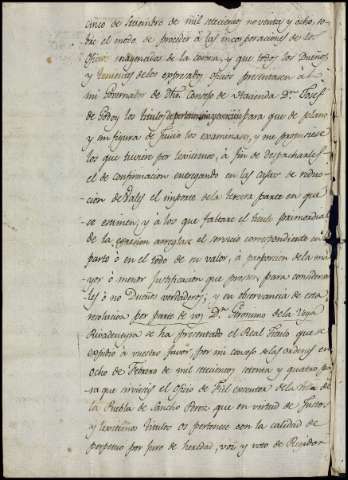 cinco de Setiembre de mil setecientos noventa y ocho, so-
bre el modo de proceder à las incorporaciones de los
oficios enagenados de la corona, y que todos los Dueños
y tenientes de los expresados oficios presentasen al
mi Governador de dho Consejo de Hacienda Dn. Josef
de Godoy los titulos de pertenencia para que de plano
y sin figura de juicio los examinase, y me propusiese
los que tuviere por lexitimos, à fin de despacharles
el de confirmacion entregando en las caxas de reduc-
cion de Vales el importe de la tercera parte en que
se estimen; y à los que faltare el titulo primordial
de la egresion arreglase el servicio correspondiente en
parte ò en el todo de su valor, à proporcion de la ma-
yor ò menor justificacion que presten para considerar-
les ò no Dueños verdaderos; y en observancia de esta
resolucion por parte de vos Dn. Geronimo de la Vega
Rivadeneyra se ha presentado el Real Titulo que se
expidio à vuestro favor, por mi consejo de las ordenes en
ocho de Febrero de mil setecientos setenta y quatro pa-
ra que sirvieseis el oficio de Fiel executor de la villa de
la Puebla de Sancho Perez que en virtud de Justos
y lexitimos titulos os pertenece con la calidad de
perpetuo por juro de heredad, voz y voto de Regidor